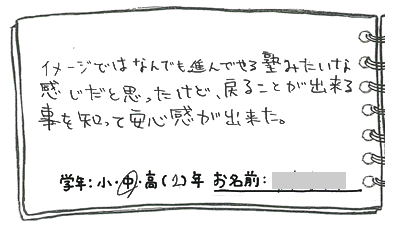 イメージではなんでも進んでやる塾みたいな
感じだと思ったけど、戻ることが出来る
事を知って安心感が出来た。
学年：小・中・高（2）年 お名前：